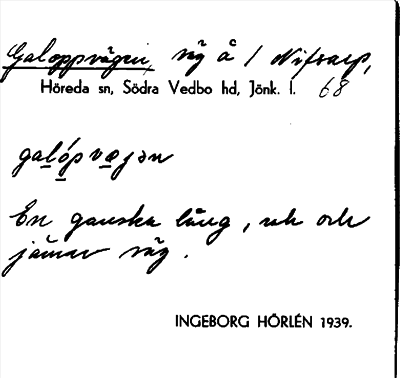 Galoppvägen, väg å / Nifsarp,
Höreda sn, Södra Vedbo hd, Jönk. l. 68
galópvæjən
En ganska lång, rak och
jämn väg.
INGEBORG HÖRLÉN 1939.